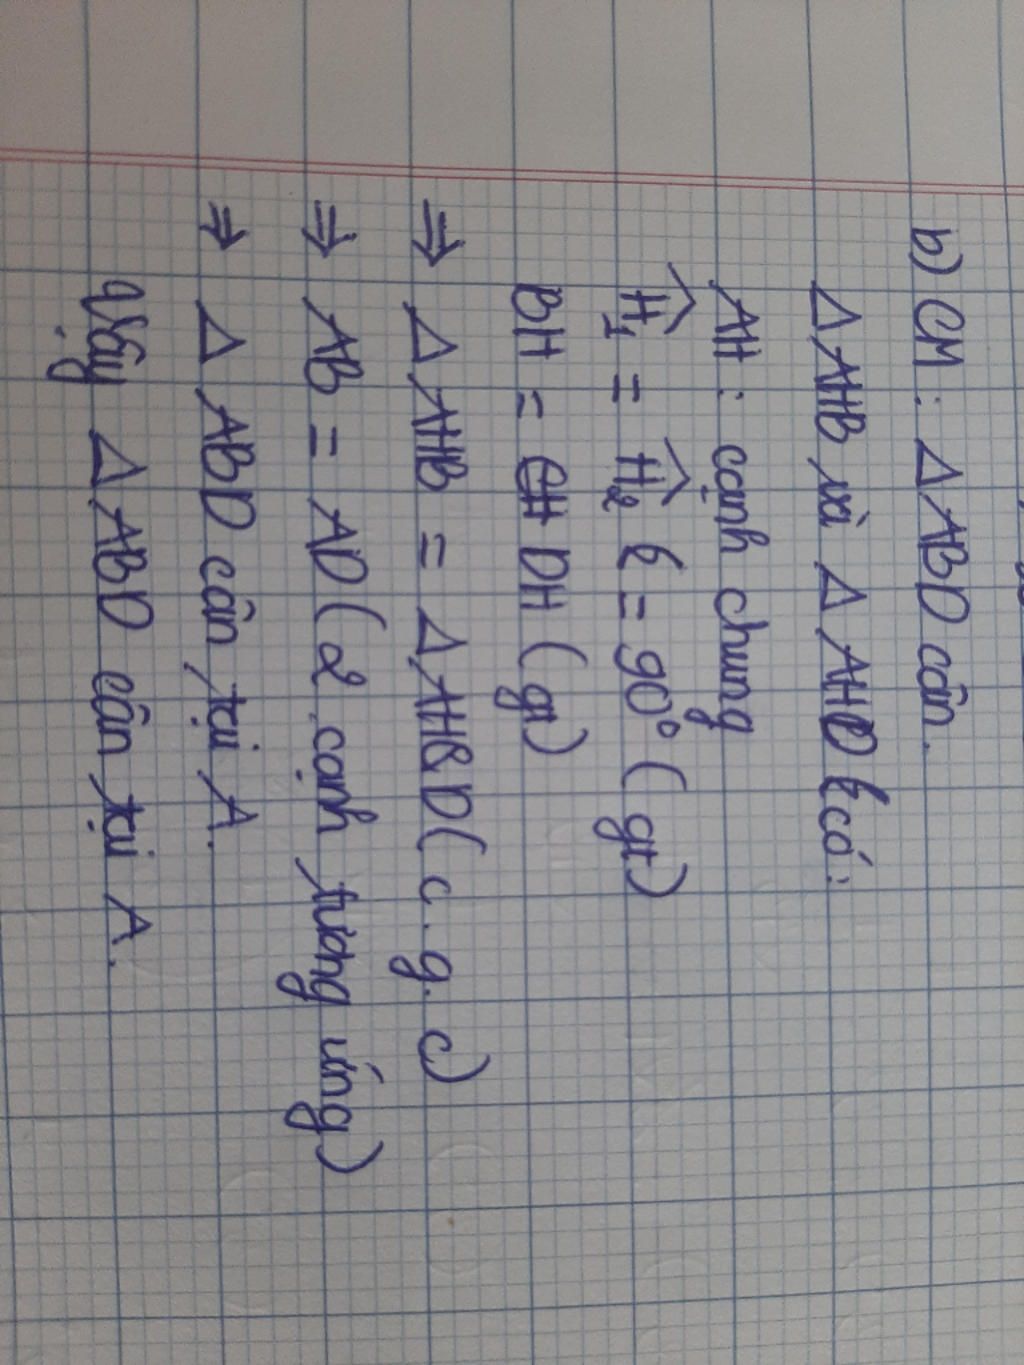 b) CM : Δ ABD cân.
Δ AHB và Δ AHD có :
AH : cạnh chung
Ĥ₁ = Ĥ₂ = 90° ( gt )
BH = DH ( gt )
⇒ Δ AHB = Δ AHD ( c . g . c )
⇒ AB = AD ( 2 cạnh tương ứng )
⇒ Δ ABD cân tại A.
Vậy Δ ABD cân tại A.